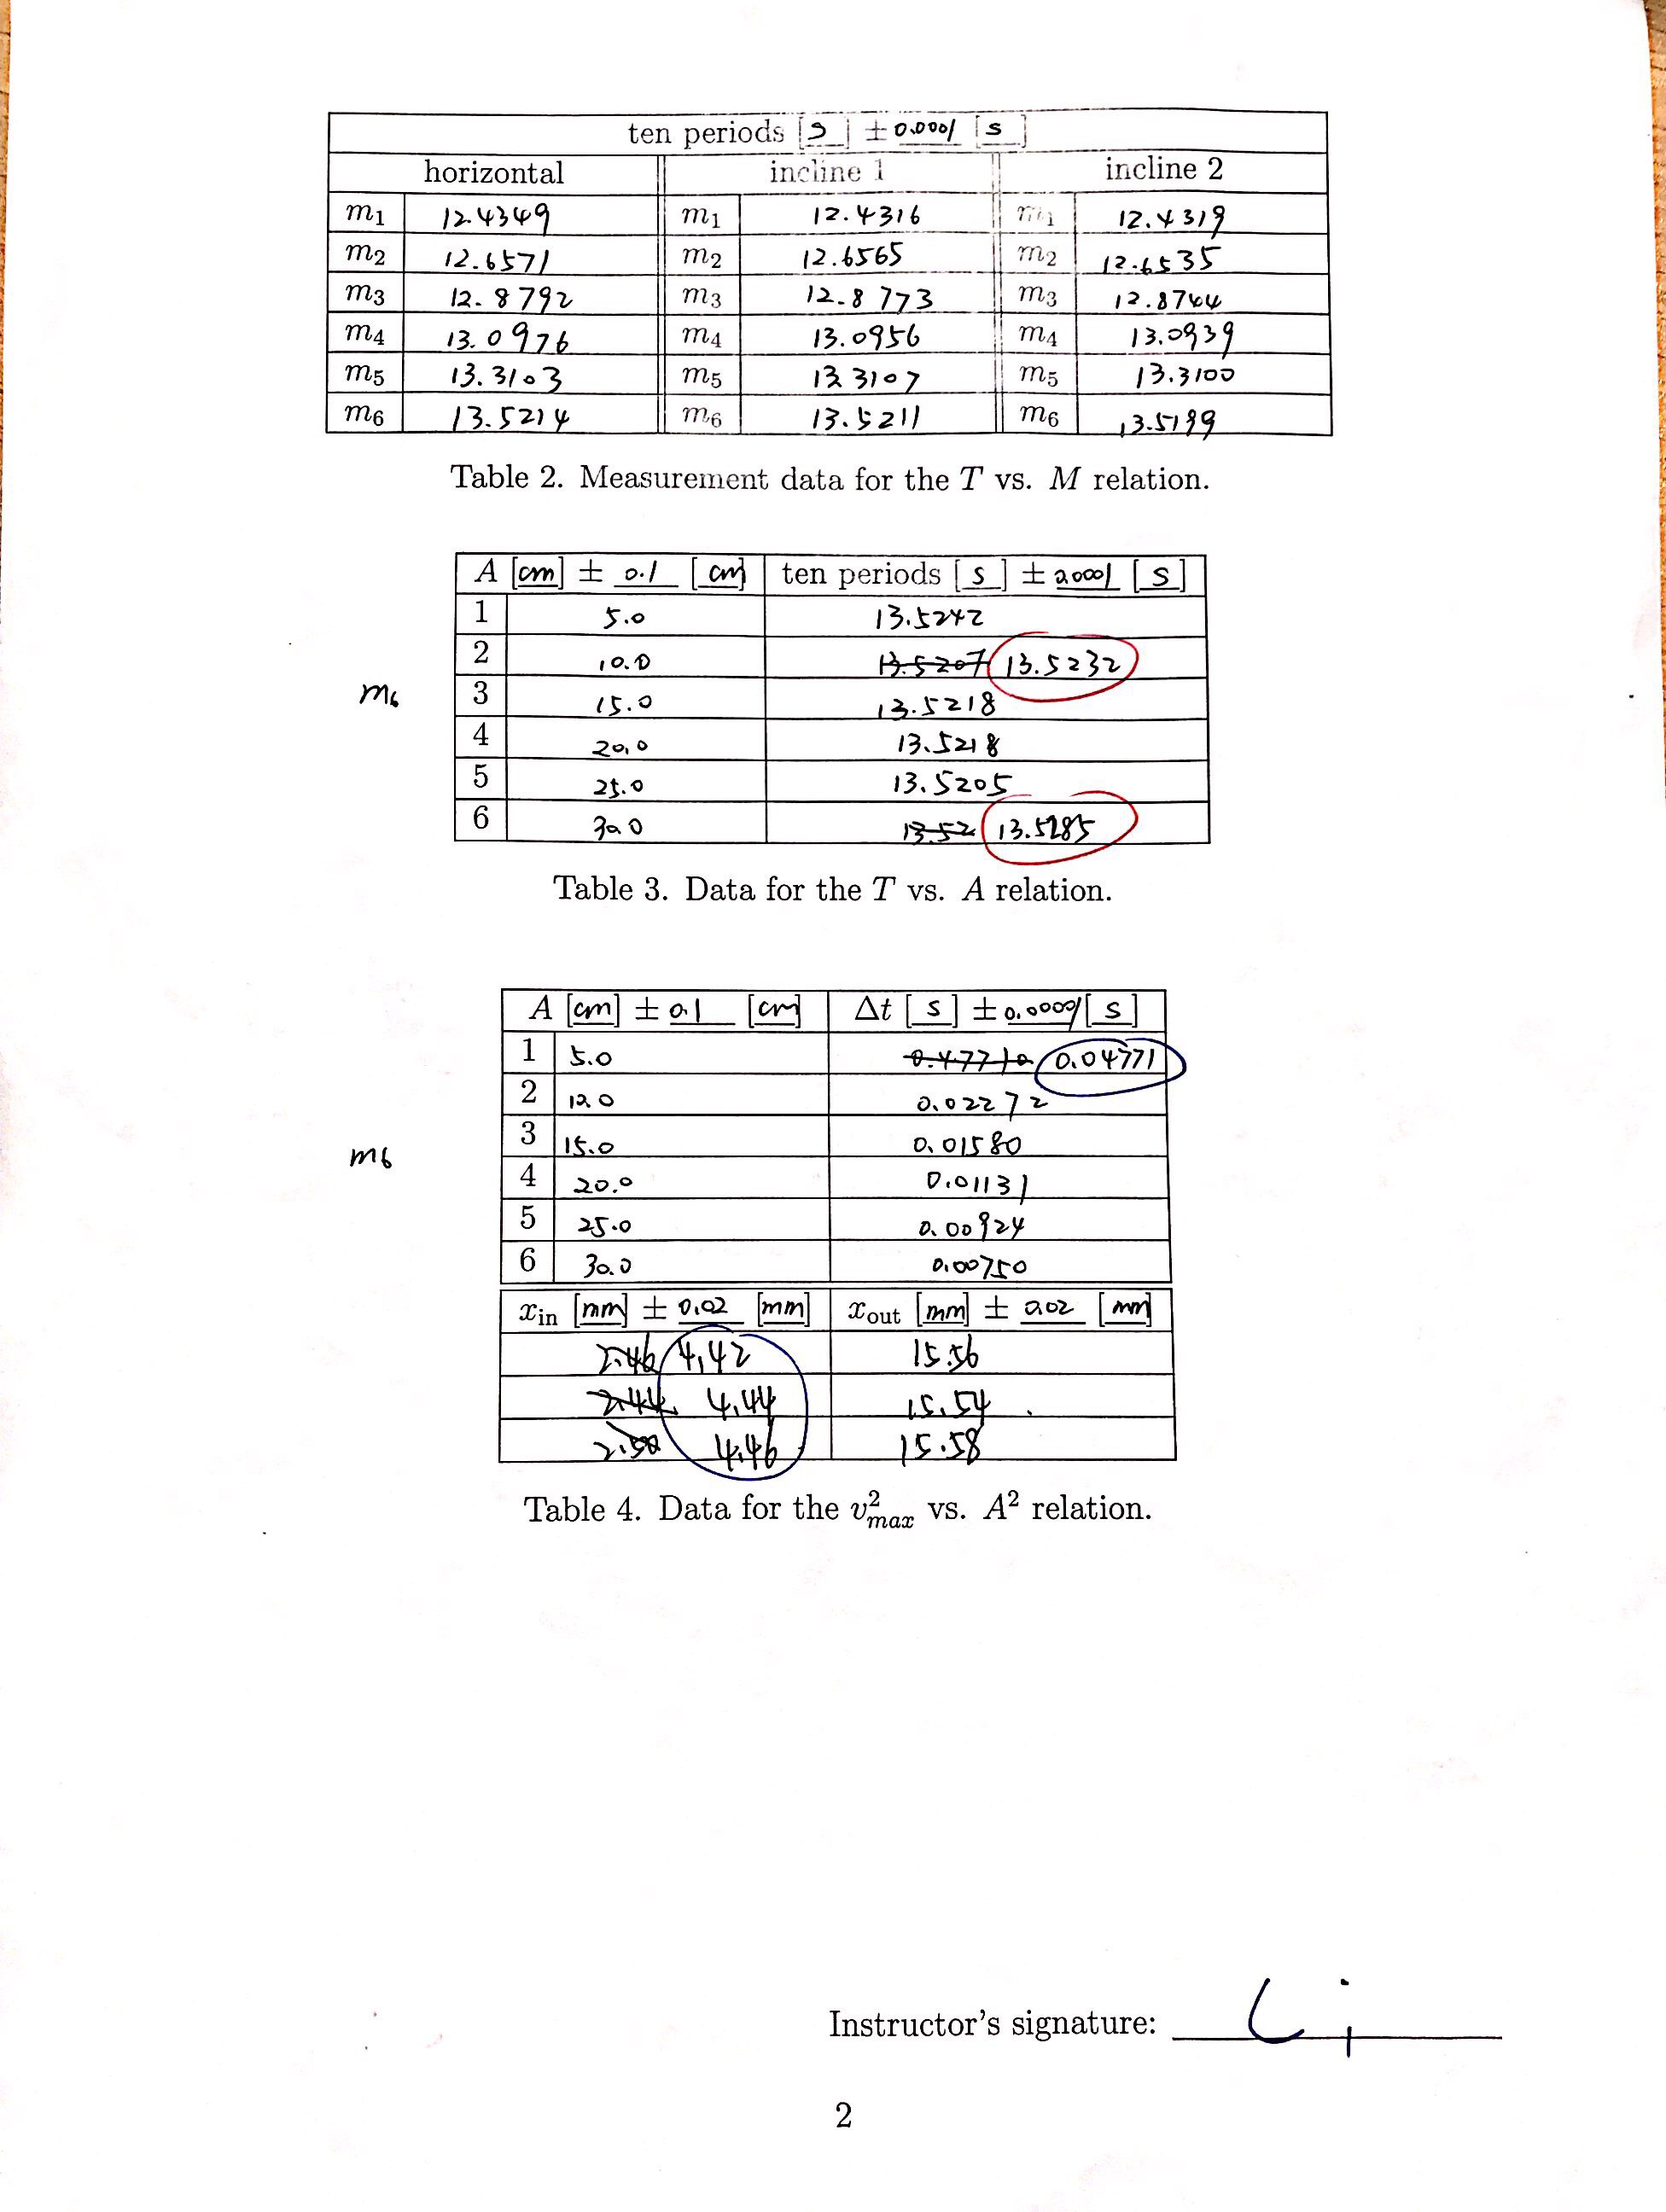 ten periods [s] ± 0.0001 [s]
horizontal incline 1 incline 2
m1 12.4349 m1 12.4316 m1 12.4319
m2 12.6571 m2 12.6565 m2 12.6535
m3 12.8792 m3 12.8773 m3 12.8744
m4 13.0976 m4 13.0956 m4 13.0939
m5 13.3103 m5 13.3107 m5 13.3100
m6 13.5214 m6 13.5211 m6
Table 2. Measurement data for the T vs. M relation.
A [cm] ± 0.1 [cm] ten periods [s] ± 0.0001 [s]
1 5.0 13.5242
2 10.0 13.5207 13.5232
m6
3 15.0 13.5218
4 20.0 13.5218
5 25.0 13.5205
6 30.0 13.52
Table 3. Data for the T vs. A relation.
A [cm] ± 0.1 [cm] Δt [s] ± 0.00001 [s]
1 5.0 0.47710 0.04771
2 10.0 0.02272
3 15.0 0.01580
m6
4 20.0 0.01131
5 25.0 0.00924
6 30.0 0.00750
xin [mm] ± 0.02 [mm] xout [mm] ± 0.02 [mm]
2.46 4.42 15.56
2.44 4.44 15.54
2.50 4.46 15.58
Table 4. Data for the v²max vs. A² relation.
Instructor's signature:
2